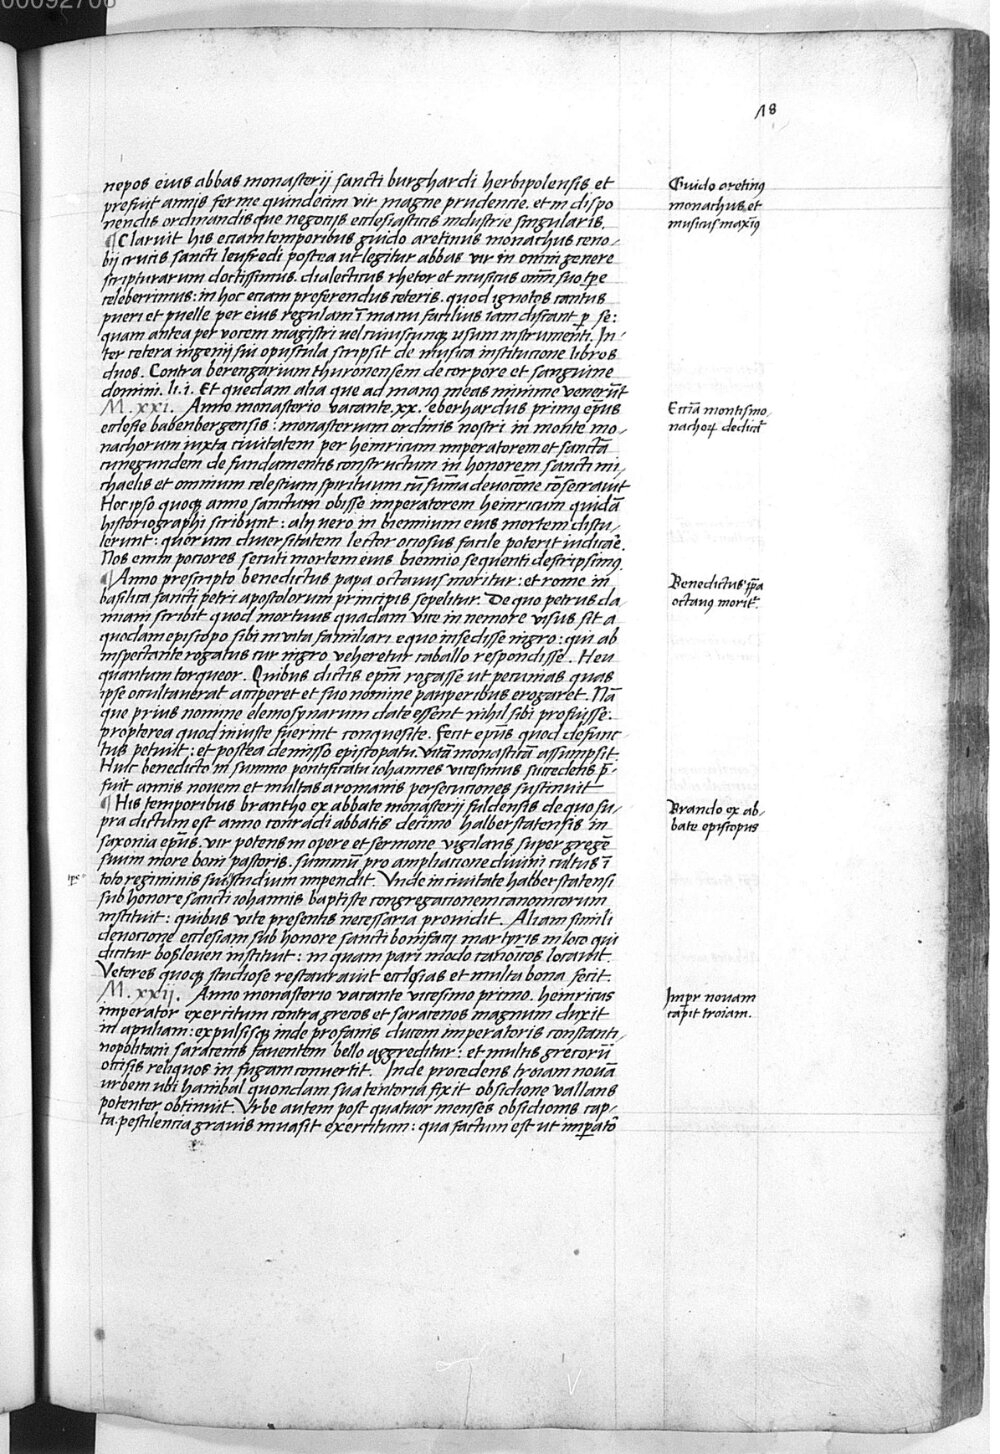 00092706
18
nepos eius abbas monasterij sancti burghardi herbipolensis et
prefuit annis ferme quindecim vir magne prudencie. et in dispo
nendis ordinandisque negocijs ecclesiasticis industrie singularis.
¶ Claruit his eciam temporibus guido aretinus monachus ceno-
bij crucis sancti leufredi postea ut legitur abbas vir in omni genere
scripturarum doctissimus. dialecticus rhetor et musicus omniū suo tp̄e
celeberrimus: in hoc eciam preferendus ceteris. quod ignotos cantus
pueri et puelle per eius regulam ī manu facilius iam discant p̱ se:
quam antea per vocem magistri vel cuiuscunqꝫ usum instrumenti. In-
ter cetera ingenij sui opuscula scripsit de musica institucione libros
duos. Contra berengarium thuronensem de corpore et sanguine
domini. li. i. Et quedam alia que ad manꝰ meas minime venerūt
M. xxi. Anno monasterio vacante. xx. eberhardus primꝰ ep̄us
ecclesie babenbergensis: monasterium ordinis nostri in monte mo-
nachorum iuxta civitatem per heinricum imperatorem et sanctā
cunegundem de fundamentis constructum in honorem sancti mi-
chaelis et omnium celestium spirituum cū sūma devocōne cōsecravit
Hoc ipso quoqꝫ anno sanctum obisse imperatorem heinricum quidā
historiographi scribunt: alij vero in biennium eius mortem distu-
lerunt: quorum diversitatem lector ociosus facile poterit iudicāe.
Nos enim pociores secuti mortem eius biennio sequenti descripsimꝰ
¶ Anno prescripto benedictus papa octavus moritur: et rome in
basilica sancti petri apostolorum principis sepelitur. De quo petrus da-
miani scribit quod mortuus quadam vice in nemore visus sit a
quodam episcopo sibi in vita familiari equo insedisse nigro: qui ab
inspectante rogatus cur nigro veheretur caballo respondisse. Heu
quantum torqueor. Quibus dictis ep̄m rogasse ut pecunias quas
ipse occultaverat acciperet et suo nomine pauperibus erogaret. Nā
que prius nomine elemosynarum date essent nihil sibi profuisse.
propterea quod iniuste fuerint conquesite. Fecit ep̄us quod defunc
tus petivit: et postea dimisso episcopatu. vitā monasticā assumpsit.
Huic benedicto in summo pontificatu iohannes vicesimus succedens p̄-
fuit annis novem et multas a romanis persecuciones sustinuit
¶ His temporibus brantho ex abbate monasterij fuldensis de quo su-
pra dictum est anno conradi abbatis decimo halberstatensis in
saxonia ep̄us. vir potens in opere et sermone vigilans super gregē
suum more boni pastoris. summū pro ampliacione divini cultus ī
toto regiminis sui studium impendit. Vnde in civitate halberstatensi
sub honore sancti iohannis baptiste congregacionem canonicorum
instituit: quibus vite presentis necessaria providit. Aliam simili
devocione ecclesiam sub honore sancti bonifacij martyris in loco qui
dicitur bosleven instituit: in quam pari modo canoīcos locavit.
Veteres quoqꝫ studiose restauravit ecclesias et multa bona fecit.
M. xxij. Anno monasterio vacante vicesimo primo. heinricus
imperator exercitum contra grecos et saracenos magnum duxit
in apuliam: expulsisqꝫ inde profanis ducem imperatoris constanti-
nopolitani saracenis faventem bello aggreditur: et multis grecorū
occisis reliquos in fugam convertit. Inde procedens troiam novā
urbem ubi hanibal quondam sua tentoria fixit obsidione vallans
potenter obtinuit. Vrbe autem post quatuor menses obsidionis cap-
ta. pestilencia gravis invasit exercitum: qua factum est ut imp̱ato
Guido aretinꝰ
monachus et
musicus maxīꝰ
Ecc̄ia montis mo-
nachoꝝ dedicat̄
Benedictus pp̄a
octavꝰ morit̄.
Brando ex ab-
bate episcopus
Imp̱r novam
capit troiam.